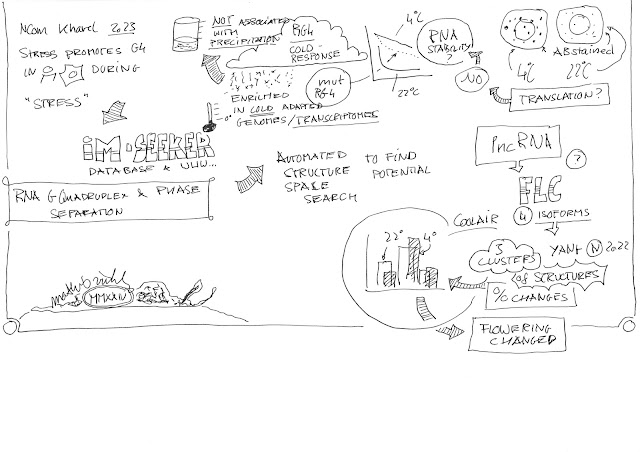 NCom Kharel 2023
STRESS PROMOTES G4
IN & DURING
"STRESS"
NOT ASSOCIATED
WITH
PRECIPITATION
RG4
COLD
RESPONSE
mut
RG4
ENRICHED
IN COLD ADAPTED
GENOMES/TRANSCRIPTOMES
0°
4°C
22°C
RNA
STABILITY
?
NO
4°C
AB stained
22°C
TRANSLATION?
iM-SEEKER
DATABASE & WWW...
RNA G QUADRUPLEX & PHASE
SEPARATION
AUTOMATED TO FIND
STRUCTURE POTENTIAL
SPACE
SEARCH
lncRNA
?
FLC
4 ISOFORMS
COOLAIR
YANG N 2022
3
CLUSTERS
of STRUCTURES
% CHANGES
22°
4°
FLOWERING
CHANGED
MMXXIV